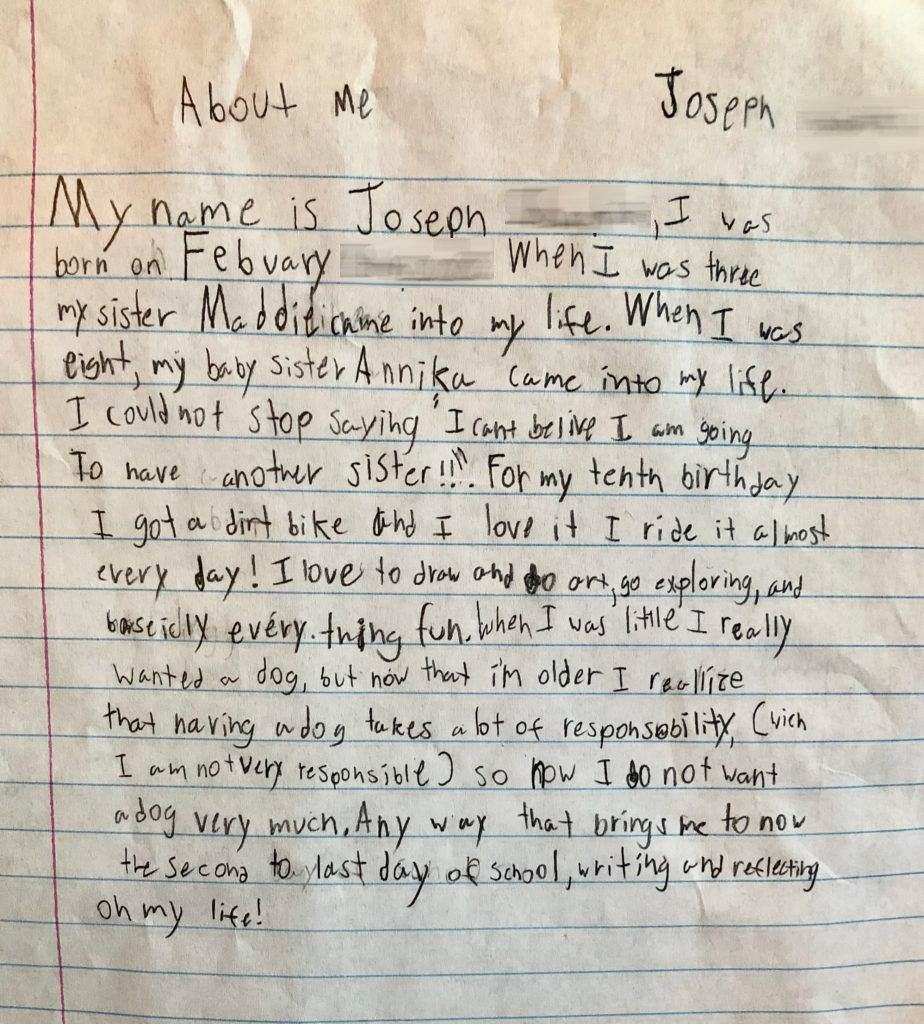 About Me Joseph
My name is Joseph , I was
born on Febuary When I was three
my sister Maddie came into my life. When I was
eight, my baby sister Annika came into my life.
I could not stop saying "I cant belive I am going
To have another sister!!!" For my tenth birthday
I got a dirt bike and I love it I ride it almost
every day! I love to draw and do art, go exploring, and
baseicly every thing fun. When I was little I really
wanted a dog, but now that i'm older I reallize
that having a dog takes a lot of responsobility, (wich
I am not very responsible) so now I do not want
a dog very much. Any way that brings me to now
the second to last day of school, writing and reflecting
on my life!